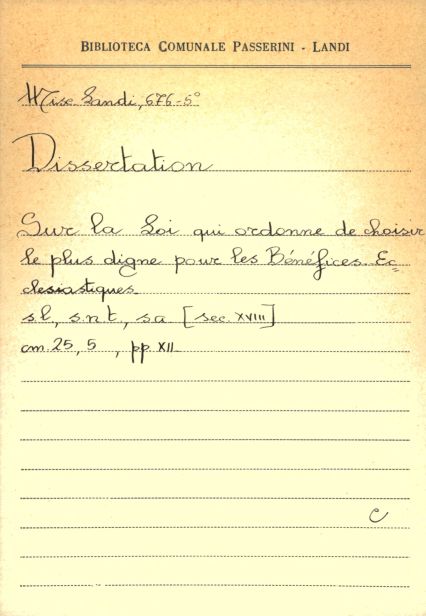 BIBLIOTECA COMUNALE PASSERINI - LANDI
Misc. Landi, 676-5°
Dissertation
Sur la Loi qui ordonne de choisir
le plus digne pour les Bénéfices Ec=
clesiastiques
s.l., s.n.t., s.a. [sec. XVIII]
cm. 25,5 , pp. XII
C